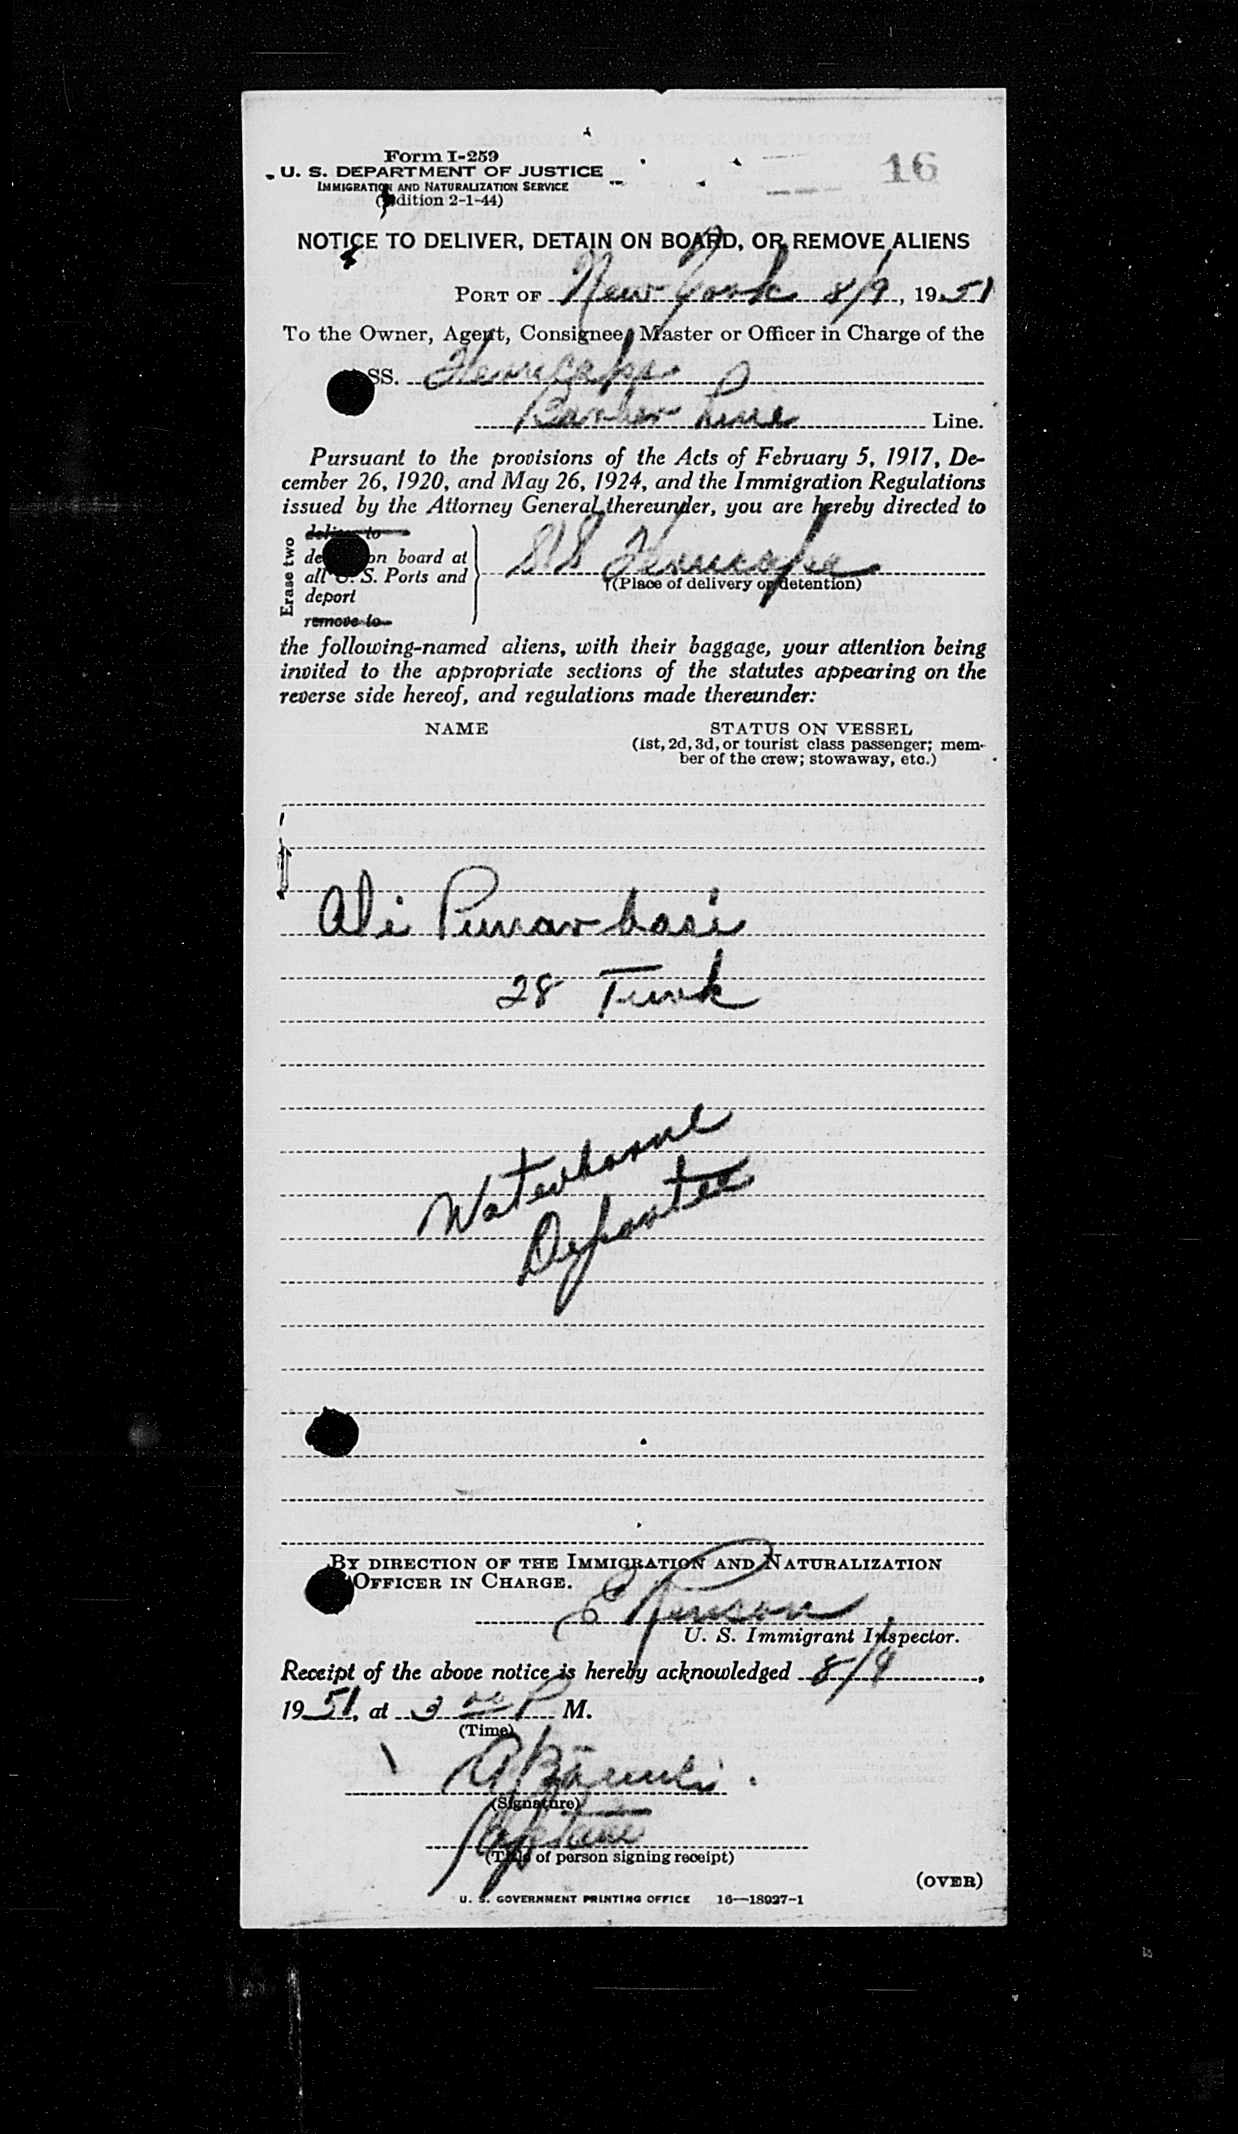 16
Form I-259
U. S. DEPARTMENT OF JUSTICE
IMMIGRATION AND NATURALIZATION SERVICE
(Edition 2-1-44)
NOTICE TO DELIVER, DETAIN ON BOARD, OR REMOVE ALIENS
PORT OF New York 8/9, 1951
To the Owner, Agent, Consignee, Master or Officer in Charge of the
SS.
Barber Line Line.
Pursuant to the provisions of the Acts of February 5, 1917, De-
cember 26, 1920, and May 26, 1924, and the Immigration Regulations
issued by the Attorney General thereunder, you are hereby directed to
Erase two
deliver to
detain on board at
all U. S. Ports and
deport
remove to
SS
(Place of delivery or detention)
the following-named aliens, with their baggage, your attention being
invited to the appropriate sections of the statutes appearing on the
reverse side hereof, and regulations made thereunder:
NAME STATUS ON VESSEL
(1st, 2d, 3d, or tourist class passenger; mem-
ber of the crew; stowaway, etc.)
Ali Punarbasi
28 Turk
Waterborne
Deportee
BY DIRECTION OF THE IMMIGRATION AND NATURALIZATION
OFFICER IN CHARGE.
E
U. S. Immigrant Inspector.
Receipt of the above notice is hereby acknowledged 8/9,
1951, at 3 00 P M.
(Time)
A
(Signature)
Captain
(Title of person signing receipt)
(OVER)
U. S. GOVERNMENT PRINTING OFFICE 16—18027-1